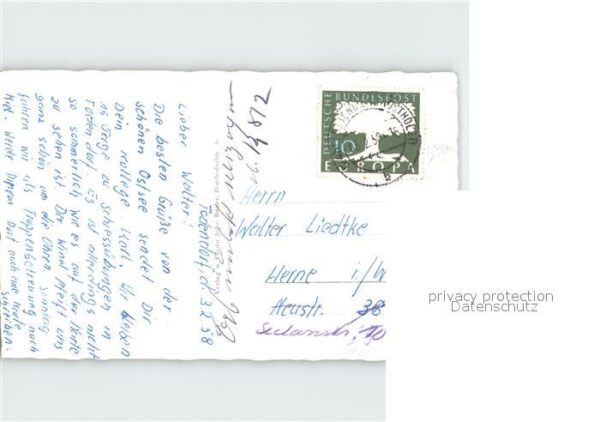 Todendorf 3.2.58
Lieber Walter!
Die besten Grüße von der
schönen Ostsee sendet Dir
Dein Kollege Karl. Wir liegen
15 Tage zu Schiessübungen in
Todendorf. Es ist allerdings nicht
so sommerlich wie es auf der Karte
zu sehen ist. Der Wind pfeift uns
ganz schön um die Ohren. Sonntag
fuhren wir als Truppenbetreuung nach
Kiel. Werde Deinen Dart auch mal heute
schreiben.
DEUTSCHE BUNDESPOST
10
EUROPA
Herrn
Walter Liedtke
Herne i/W
Neustr. 38
Sedanstr. 10
privacy protection
Datenschutz